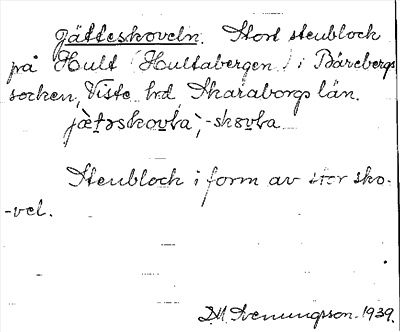 Jätteskoveln. Stort stenblock
på Hult (Hultabergen) i Bårebergs
socken, Viste hrd, Skaraborgs län.
jætəskovḷa, -skøvḷa
Stenblock i form av stor sko-
-vel.
D.M. Svenungsson. 1939.